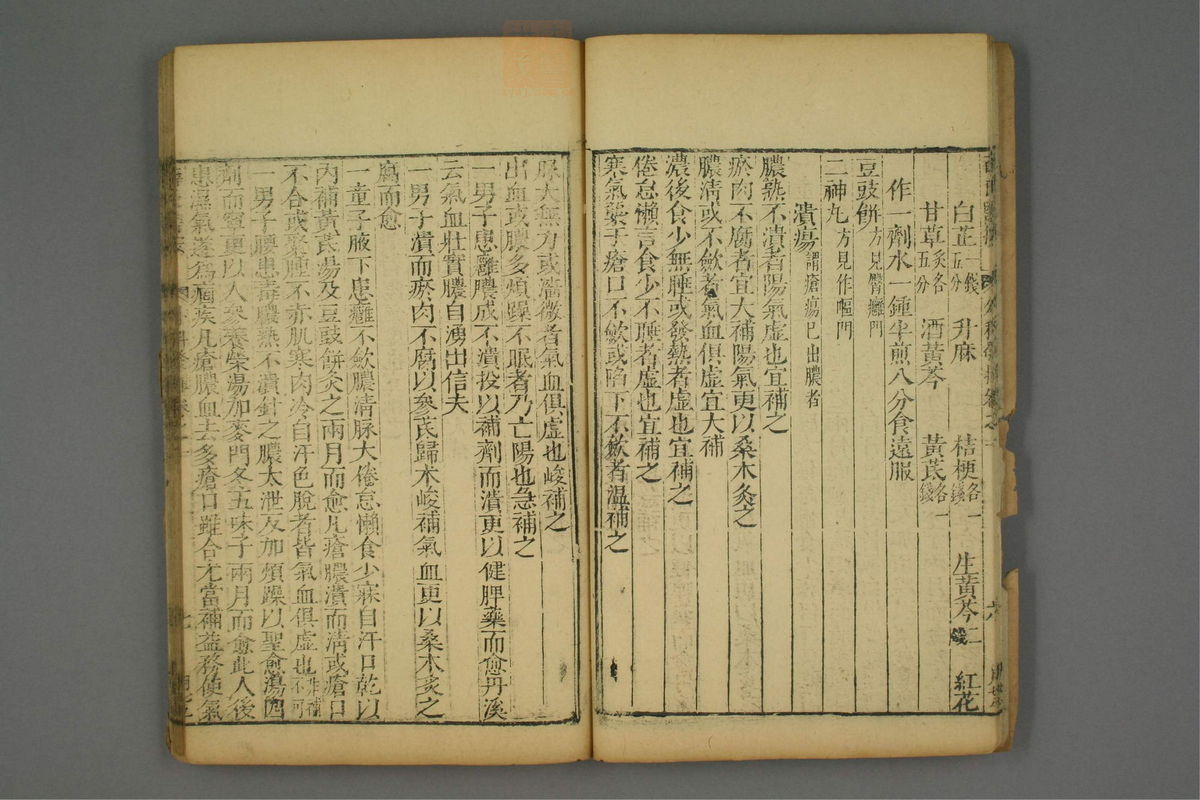 白芷一錢五分 升麻 桔梗各一錢 生黃芩二錢 紅花
甘草炙各五分 酒黃芩 黃芪各一錢
作一劑水一鍾半煎八分食遠服
豆豉餅方見臀癰門
二神丸方見作嘔門
潰瘍謂瘡瘍已出膿者
膿熟不潰者陽氣虛也宜補之
瘀肉不腐者宜大補陽氣更以桑木灸之
膿清或不斂者氣血俱虛宜大補
膿後食少無睡或發熱者虛也宜補之
倦怠懶言食少不睡者虛也宜補之
寒氣襲于瘡口不斂或陷下不斂者溫補之
脉大無力或濇微者氣血俱虛也峻補之
出血或膿多煩躁不眠者乃亡陽也急補之
一男子患離膿成不潰投以補劑而潰更以健脾藥而愈丹溪
云氣血壯實膿自湧出信夫
一男子潰而瘀肉不腐以參芪歸术峻補氣血更以桑木炙之
腐而愈
一童子腋下患癰不斂膿清脉大倦怠懶食少寐自汗口乾以
內補黃芪湯及豆豉餅灸之兩月而愈凡瘡膿潰而清或瘡口
不合或聚腫不赤肌寒肉冷自汗色脫者皆氣血俱虛也非補不可
一男子腰患毒膿熟不潰針之膿大泄反加煩躁以聖愈湯四
劑而寧更以人參養榮湯加麥門冬五味子兩月而愈此人後
患濕氣遂為痼疾凡瘡膿血去多瘡口雖合尤當補益務使氣